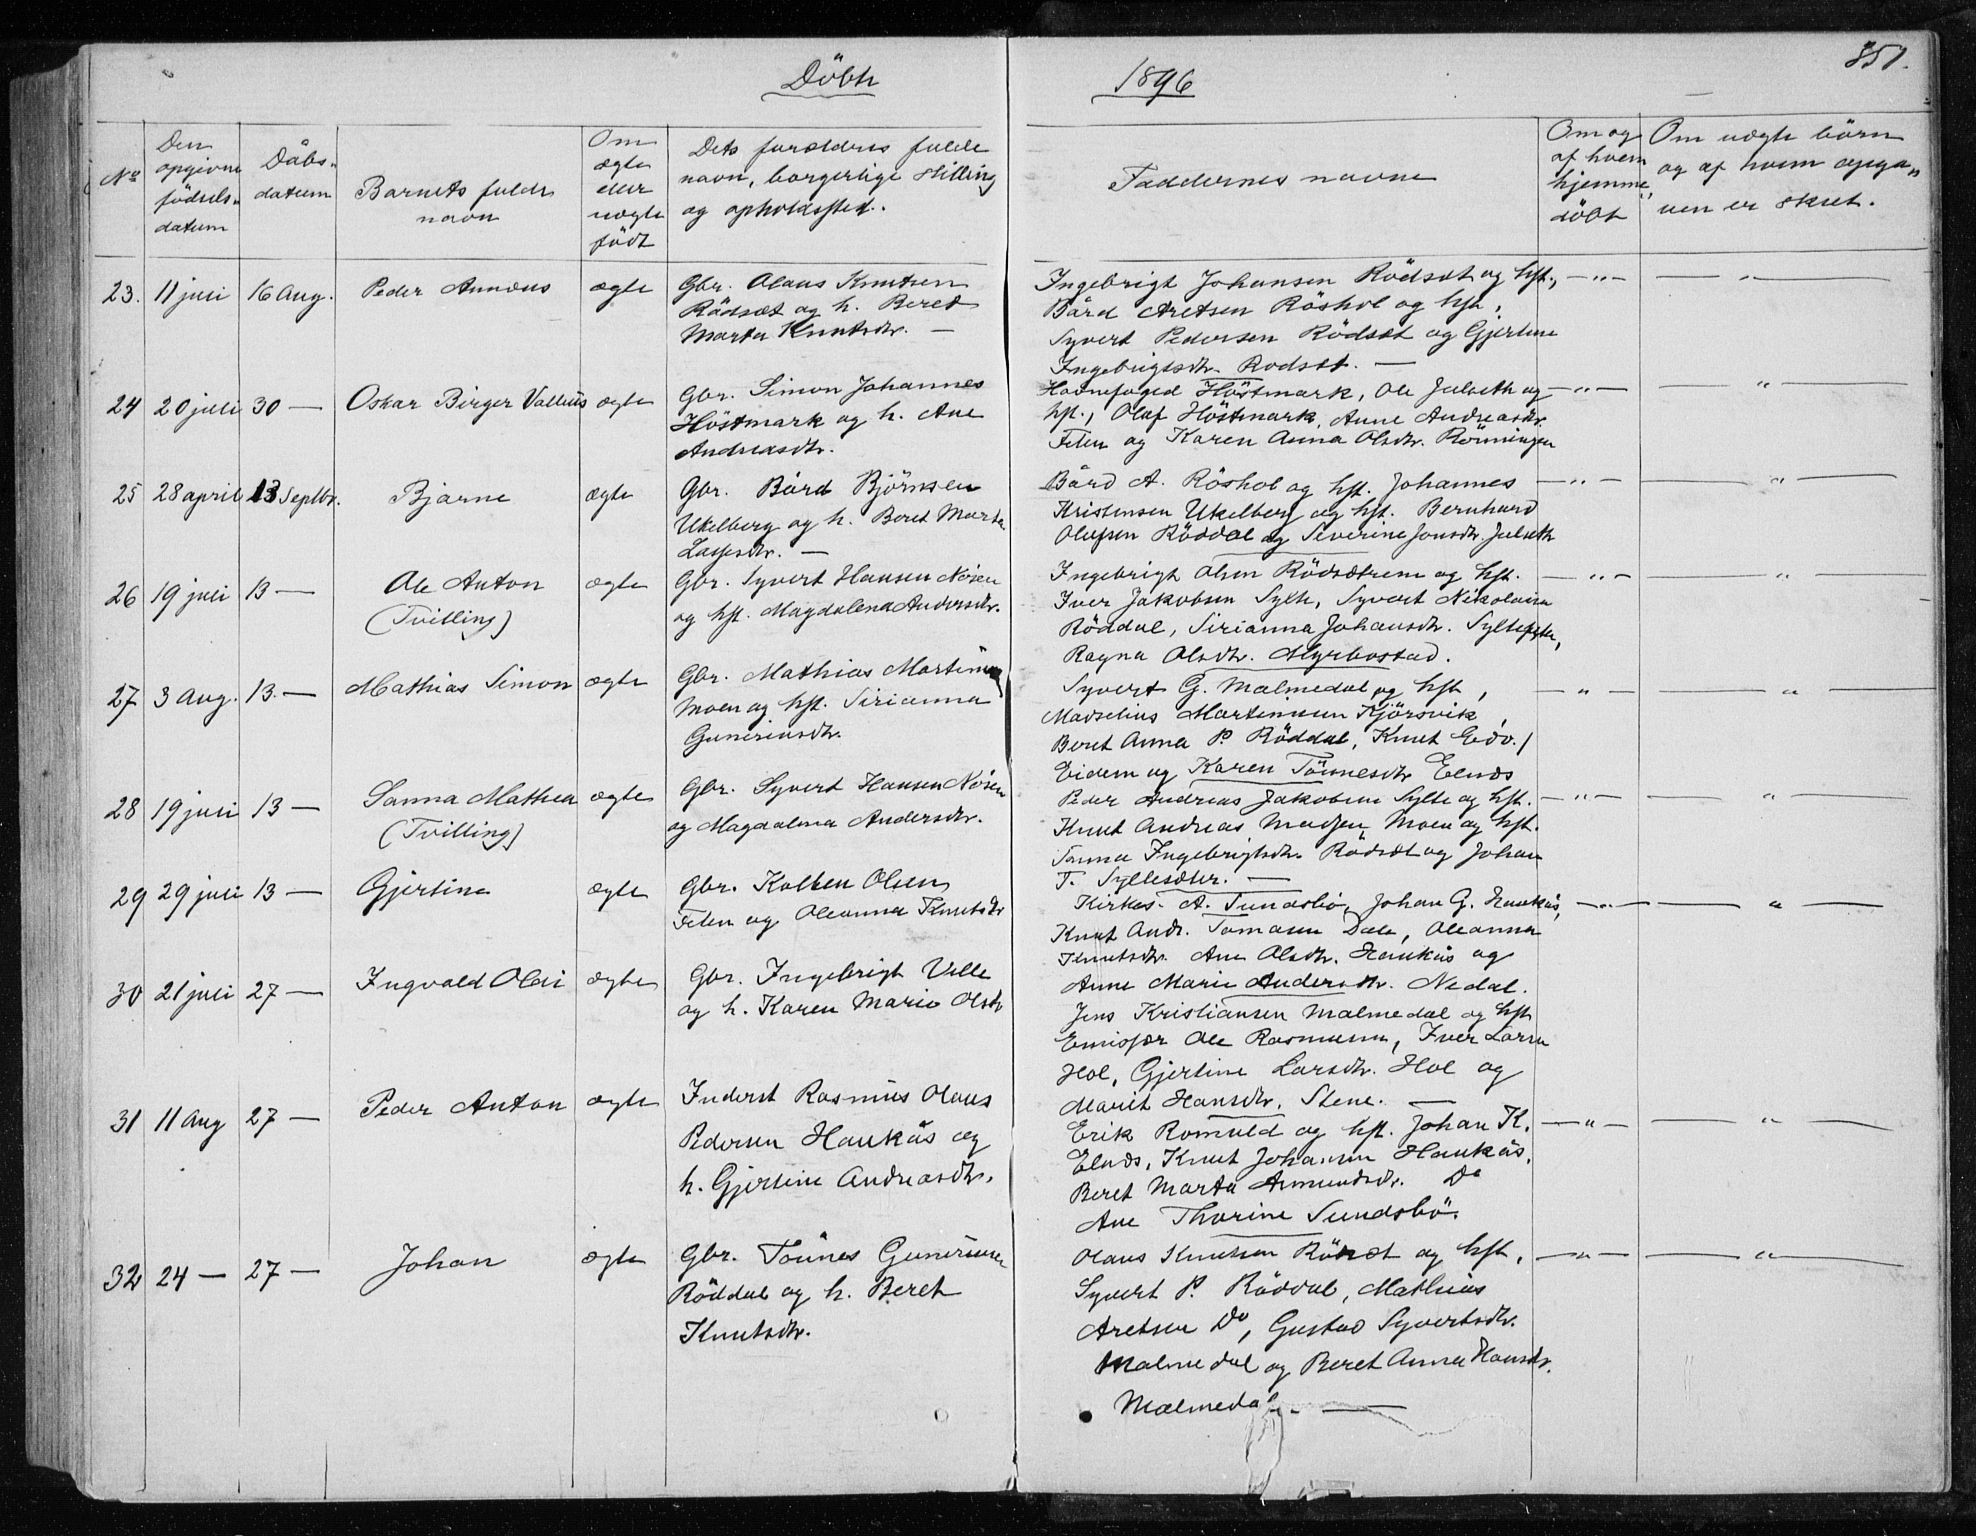 351.
Döbte 1896
No
Den opgivne födsels- datum
Dåbs- datum
Barnets fulde navn
Om ægte eller uægte födt
Dets forældres fulde navn, borgerlige stilling og opholdssted.
Faddernes navne
Om og af hvem hjemme- döbt
Om uægte börn og af hvem opga- ven er skret.
23. 11 juli 16 Aug. Peder Annæus ægte
Gbr. Olaus Knutsen
Rödsæt og h. Beret
Marta Knutsdtr. —
Ingebrigt Johansen Rödsæt og hst., — " — — " —
Bård Aretsen Röshol og hst.,
Syvert Pedersen Rödsæt og Gjertine
Ingebrigtsdtr. Rödsæt. —
24 20 juli 30 — Oskar Birger Vallius ægte
Gbr. Simon Johannes
Höstmark og h. Ane
Andreasdtr.
Havnefoged Höstmark, Ole Julseth og — " — — " —
hst., Olaf Höstmark, Anne Andreasdtr.
Filen og Karen Anna Olsdtr. Rönningen
25 28 april 13 Septbr. Bjarne ægte
Gbr. Bård Björnsen
Ukelberg og h. Beret Marta
Lassesdtr. —
Bård A. Röshol og hst. Johannes — " — — " —
Kristensen Ukelberg og hst. Bernhard
Olufsen Röddal og Severine Jonsdtr. Julseth
26 19 juli 13 — Ole Anton ægte
(Tvilling)
Gbr. Syvert Hansen Nösen
og hst. Magdalena Andersdtr.
Ingebrigt Olsen Rödsætrem og hst. — " — — " —
Iver Jakobsen Sylte, Syvert Nikolaisen
Röddal, Sirianna Johansdtr. Syltesæter,
Ragna Olsdtr. Myrbostad.
27 3 Aug. 13. — Mathias Simon ægte
Gbr. Mathias Martinus
Moen og hst. Sirianna
Guneriusdtr.
Syvert G. Malmedal og hst, — " — — " —
Madselius Martinusen Kjörsvik,
Beret Anna P. Röddal, Knut Edv./
Eidem og Karen Tönnesdtr Elnæs
28 19 juli 13 — Sanna Mathea ægte
(Tvilling)
Gbr. Syvert Hansen Nösen
og Magdalena Andersdtr.
Peder Andreas Jakobsen Sylte og hst. — " — — " —
Knut Andreas Madsen Moen og hst.
Sanna Ingebrigtsdtr. Rödsæt og Johan
T. Syltesæter. —
29 29 juli 13 — Gjertine ægte
Gbr. Kolben Olsen
Filen og Oleanna Knutsdtr
Kirkes. A. Sundsbö, Johan G. Haukås, — " — — " —
Knut Andr. Tomasen Dale, Oleanna
Knutsdtr. Ane Olsdtr. Haukås og
Anne Marie Andersdtr. Nedal.
30 21 juli 27 — Ingvald Olai ægte
Gbr. Ingebrigt Ville
og h. Karen Marie Olsdtr
Jens Kristiansen Malmedal og hst
Emissær Ole Rasmusen, Iver Larsen
Hol, Gjertine Larsdtr. Hol og
Marit Hansdtr. Stene. —
31 11 Aug 27 — Peder Anton ægte
Inderst Rasmus Olaus
Pedersen Haukås og
h. Gjertine Andreasdtr.
Erik Romuld og hst. Johan K. — " — — " —
Elnæs, Knut Johansen Haukås,
Beret Marta Amundsdtr. Do
Ane Thorine Sundsbö.
32 24 — 27 — Johan ægte
Gbr. Tönnes Guneriusen
Röddal og h. Beret
Knutsdtr.
Olaus Knutsen Rödsæt og hst, — " — — " —
Syvert P. Röddal, Mathias
Aretsen Do, Gustav Syvertsdtr.
Malmedal og Beret Anna Hansdtr.
Malmedal. —